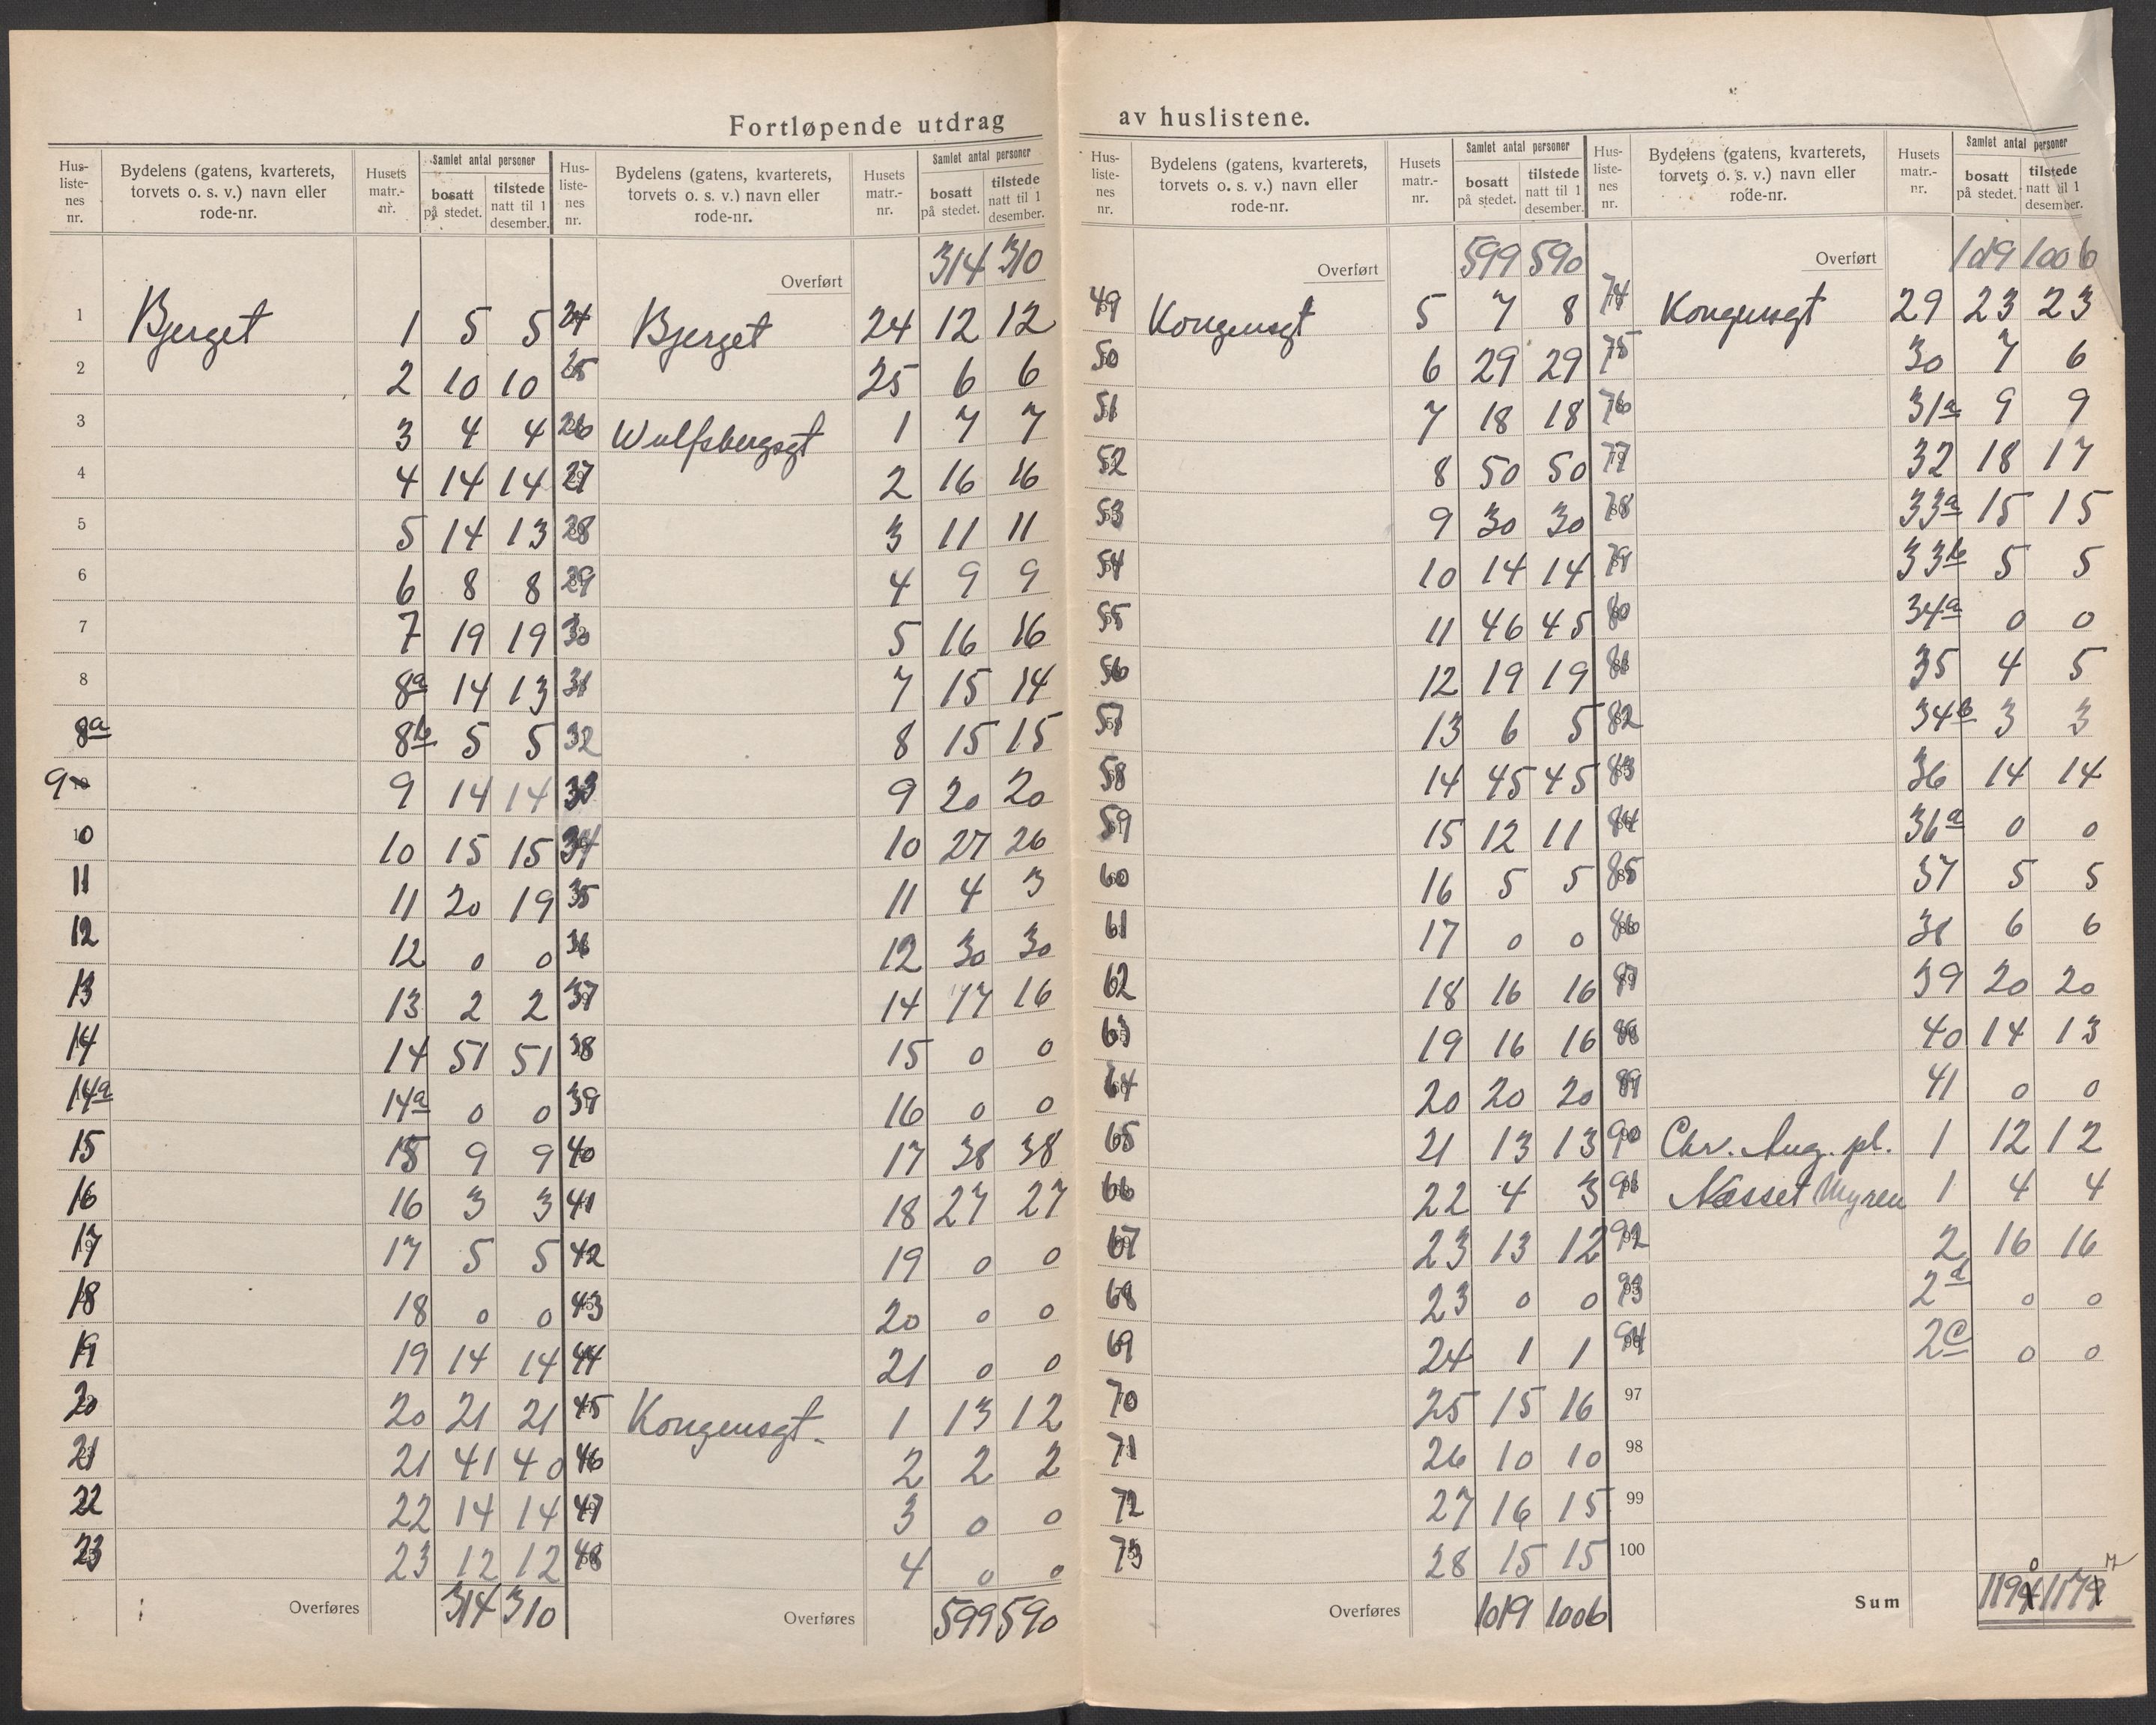 Fortløpende utdrag av huslistene.
Hus-listenes nr. | Bydelens (gatens, kvarterets, torvets o. s. v.) navn eller rode-nr. | Husets matr.-nr. | Samlet antal personer bosatt på stedet. | tilstede natt til 1 desember.
1 Bjerget 1 5 5
2 2 10 10
3 3 4 4
4 4 14 14
5 5 14 13
6 6 8 8
7 7 19 19
8 8a 14 13
8a 8b 5 5
9 9 14 14
10 10 15 15
11 11 20 19
12 12 0 0
13 13 2 2
14 14 51 51
14a 14a 0 0
15 15 9 9
16 16 3 3
17 17 5 5
18 18 0 0
19 19 14 14
20 20 21 21
21 21 41 40
22 22 14 14
23 23 12 12
Overføres 314 310
Hus-listenes nr. | Bydelens (gatens, kvarterets, torvets o. s. v.) navn eller rode-nr. | Husets matr.-nr. | Samlet antal personer bosatt på stedet. | tilstede natt til 1 desember.
Overført 314 310
24 Bjerget 24 12 12
25 25 6 6
26 Wulfsbergsgt 1 7 7
27 2 16 16
28 3 11 11
29 4 9 9
30 5 16 16
31 7 15 14
32 8 15 15
33 9 20 20
34 10 27 26
35 11 4 3
36 12 30 30
37 14 17 16
38 15 0 0
39 16 0 0
40 17 38 38
41 18 27 27
42 19 0 0
43 20 0 0
44 21 0 0
45 Kongensgt. 1 13 12
46 2 2 2
47 3 0 0
48 4 0 0
Overføres 599 590
Hus-listenes nr. | Bydelens (gatens, kvarterets, torvets o. s. v.) navn eller rode-nr. | Husets matr.-nr. | Samlet antal personer bosatt på stedet. | tilstede natt til 1 desember.
Overført 599 590
49 Kongensgt 5 7 8
50 6 29 29
51 7 18 18
52 8 50 50
53 9 30 30
54 10 14 14
55 11 46 45
56 12 19 19
57 13 6 5
58 14 45 45
59 15 12 11
60 16 5 5
61 17 0 0
62 18 16 16
63 19 16 16
64 20 20 20
65 21 13 13
66 22 4 3
67 23 13 12
68 23 0 0
69 24 1 1
70 25 15 16
71 26 10 10
72 27 16 15
73 28 15 15
Overføres 1019 1006
Hus-listenes nr. | Bydelens (gatens, kvarterets, torvets o. s. v.) navn eller rode-nr. | Husets matr.-nr. | Samlet antal personer bosatt på stedet. | tilstede natt til 1 desember.
Overført 1019 1006
74 Kongensgt 29 23 23
75 30 7 6
76 31a 9 9
77 32 18 17
78 33a 15 15
79 33b 5 5
80 34a 0 0
81 35 4 5
82 34b 3 3
83 36 14 14
84 36a 0 0
85 37 5 5
86 38 6 6
87 39 20 20
88 40 14 13
89 41 0 0
90 Chr. Aug. pl. 1 12 12
91 Næsset Myren 1 4 4
92 2 16 16
93 2d 0 0
94 2c 0 0
97
98
99
100
Sum 1194 1179